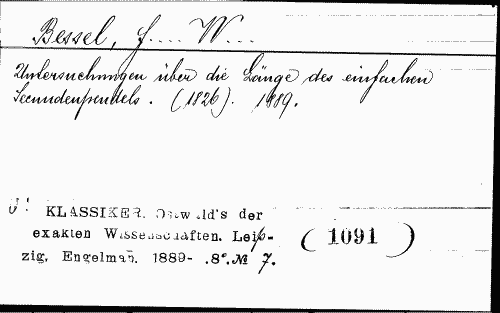 Bessel, F.... W...
Untersuchungen über die Länge des einfachen
Secundenpendels. (1826). 1889.
KLASSIKER. Ostwald's der
exakten Wissenschaften. Leip-
zig, Engelman. 1889- .8°. № 7.
( 1091 )